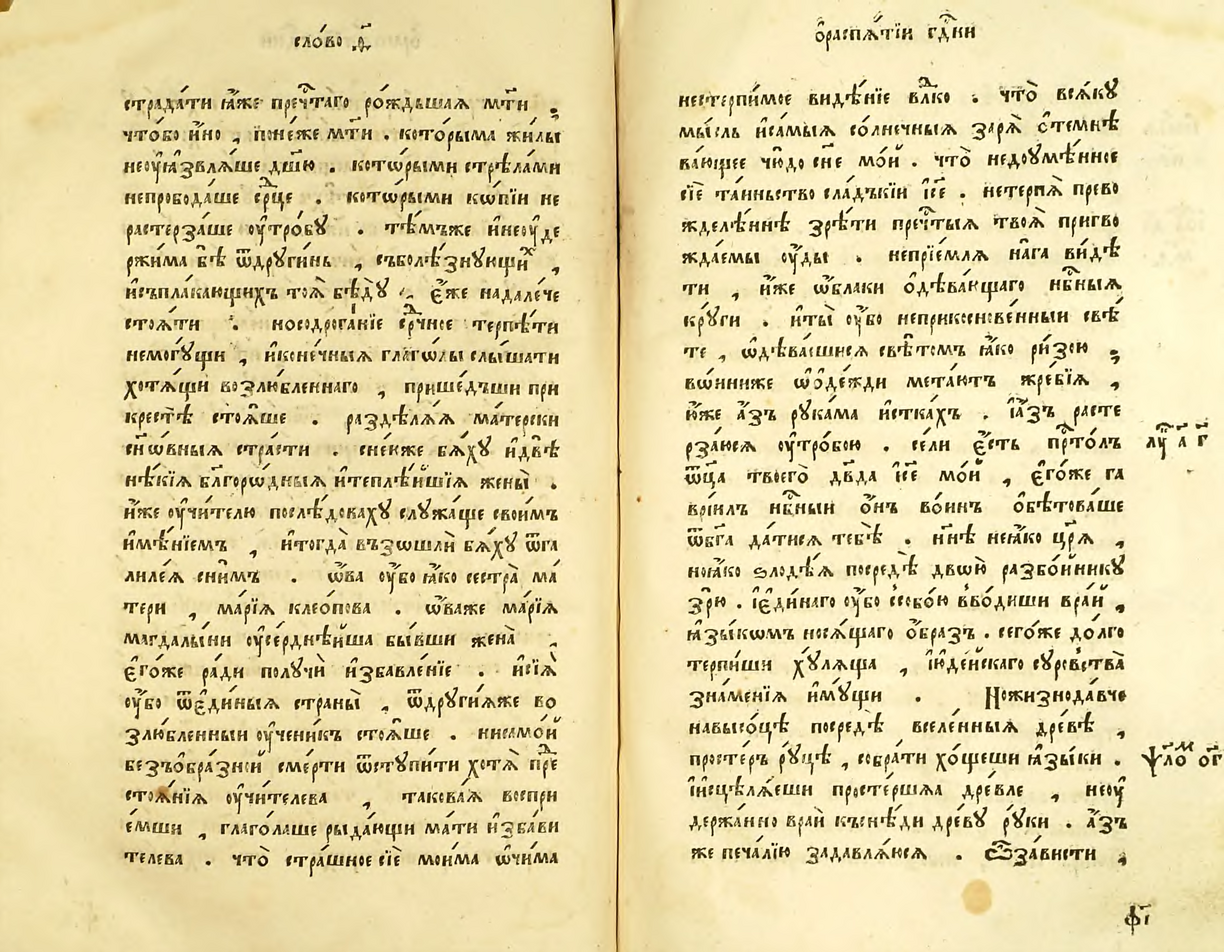 сло́во д҃
страда́ти ꙗ҆́же пречⷭ҇таго ро́ждьшаѧ мт҃и ,
что́бо и҆но , поне́же мт҃и . кото́рыма жи́лы
неꙋ҆ꙗ҆звлѧ́ше дш҃ю . котѡ́рыми стрѣ́лами
непробода́ше срⷣце . кото́рыми кѡ́пїи не
растерза́ше ѹ҆тро́бꙋ . тѣ́мъже и҆неѹ҆де
ржи́ма бѣ̀ ѿдрꙋги́нь , съболѣ́знꙋющиⷯ ,
и҆съпла́кающихъ тоѧ̀ бѣ́дꙋ , є҆́же надале́че
стоѧ́ти . носодрога́нїе срⷣчное терпѣ́ти
немогꙋ́щи , и҆коне́чныѧ глаго́лы слы́шати
хотѧ́щи возлю́бленнаго , прише́дъши при
крестѣ̀ стоѧ́ше . раздѣлѧ́ѧ ма́терски
сн҃ѡ́вныѧ стра́сти . сне́юже бѧ́хꙋ и҆двѣ̀
нѣ́кїѧ бл҃горѡ́дныѧ и҆теплѣ́йшїѧ жены̀ .
и҆́же ѹ҆чи́телю послѣ́довахꙋ слꙋжа́ще свои́мъ
и҆мѣ́нїемъ , и҆тогда̀ възошлѝ бѧ́хꙋ ѿга
лиле́ѧ сни́мъ . ѡ҆́ва ѹ҆́бо ꙗ҆́ко сестра̀ ма́
тери , ма́рїѧ клео́пова . ѡ҆́важе ма́рїѧ
магдалы́ни ѹ҆се́рднѣйша бы́вши жена̀ ,
є҆го́же ра́ди полꙋчѝ и҆збавле́нїе . и҆сїѧ̀
ѹ҆́бо ѿє҆ди́ныѧ страны̀ , ѿдрꙋги́ѧже во
злю́бленныи ѹ҆чени́къ стоѧ́ше . нисамо́й
безъѻ҆бра́зней сме́рти ѿстꙋпи́ти хотѧ̀ преⷣ
стоѧ́нїѧ ѹ҆чи́телева , такова́ѧ воспри
е́мши , глаго́лаше рыда́ющи ма́ти и҆зба́ви
телева . что̀ стра́шное сїѐ мои́ма ѡ҆чи́ма
ѻ҆распѧ́тїи гдⷭ҇ни
нестерпи́мое видѣ́нїе влⷣко . что̀ всѧ́кꙋ
мы́сль и҆са́мыѧ со́лнечныѧ зарѧ̀ ѻ҆темнѣ
ва́ющее чю́до сн҃е мо́й . что̀ недоꙋмѣ́нное
сїѐ та́иньство сла́дъкїи і҆с҃е . нетерпѧ̀ прево
жделѣ́ннѣ зрѣ́ти пречⷭ҇тыѧ твоѧ̀ пригво
жда́емы ѹ҆́ды . непрїе́млѧ на́га ви́дѣ
ти , и҆́же ѡ҆́блаки ѻ҆дѣва́ющаго нбⷭ҇ныѧ
крꙋ́ги . и҆ты̀ ѹ҆́бо неприкоснове́нныи свѣ́
те , ѡ҆дѣва́ѧисѧ свѣ́томъ ꙗ҆́ко ри́зою ;
вѡ́иниже ѡ҆ѻ҆де́жди мета́ютъ жре́бїѧ ,
ю҆́же а҆́зъ рꙋка́ма и҆стка́хъ . і҆а҆́зъ расте
рза́юсѧ ѹ҆тро́бою . се́ли є҆́сть прⷭ҇то́лъ
ѿц҃а̀ твоего̀ дв҃да і҆с҃е мо́й , є҆го́же га
врїи́лъ нбⷭ҇ныи ѻ҆́нъ во́инъ ѻ҆бѣтова́ше
ѿбг҃а да́тисѧ тебѣ̀ . нн҃ѣ неꙗ҆́ко цр҃ѧ̀ ,
ноꙗ҆́ко ѕлодѣ́ѧ посредѣ̀ двѡю̀ разбо́йникꙋ
зрю̀ . і҆є҆ди́наго ѹ҆́бо ссобо́ю вво́диши вра́й ,
ꙗ҆зы́кѡмъ носѧ́щаго ѻ҆́бразъ . сего́же до́лго
терпи́ши хꙋ́лѧща , і҆ю҆де́йскаго сꙋро́вства
зна́менїѧ и҆мꙋ́щи . Ножизнода́вче
навысо́цѣ посредѣ̀ вселе́нныѧ дре́вѣ ,
просте́ръ рꙋ́цѣ , собра́ти хо́щеши ꙗ҆зы́ки .
і҆и҆сцѣлѧ́еши просте́ршѧа дре́вле , неѹ҆
держа́нно вра́й къснѣ́ди дре́вꙋ рꙋ́ки . а҆́зъ
же печа́лїю задавлѧ́юсѧ . Ѿза́висти ,
лꙋⷦ҇ а҃ г҃
ѱало́мⷨ ѻ҃г
ф҃і